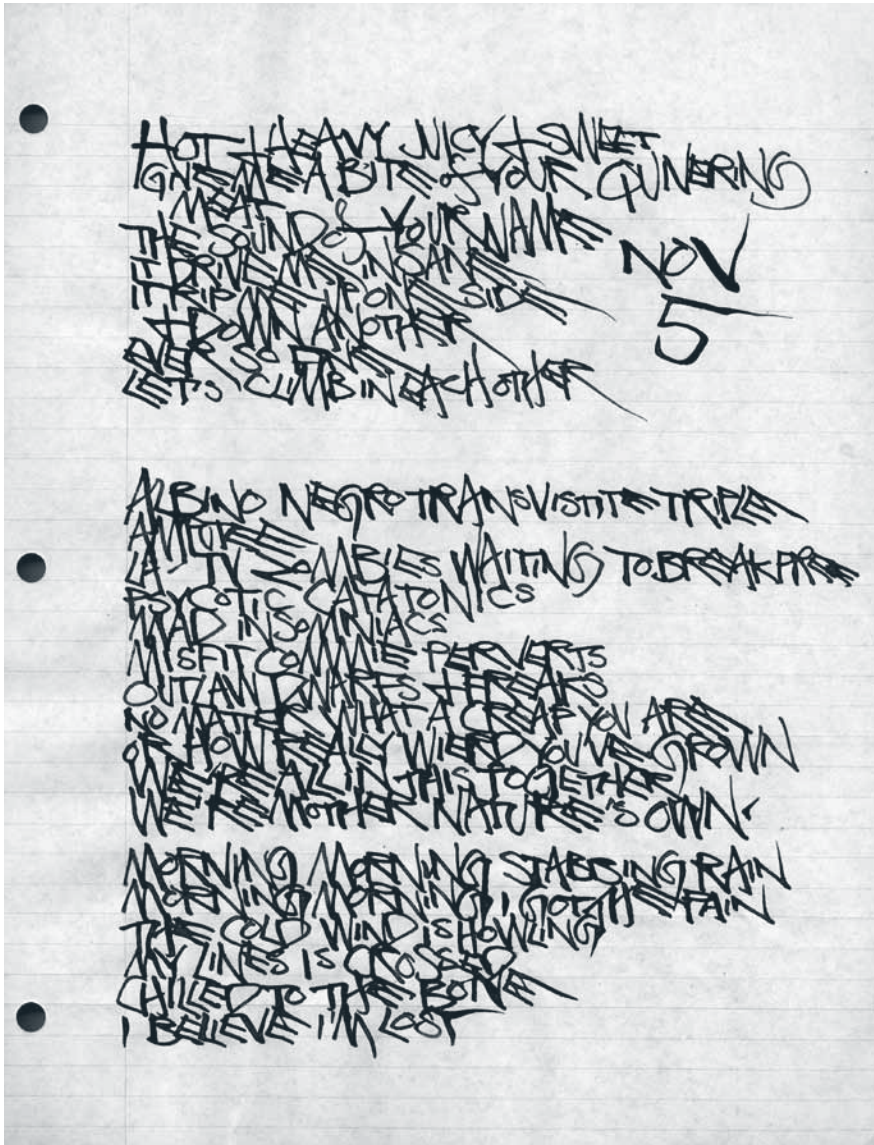 HOT + HEAVY JUICY + SWEET
GIVE ME A BITE of YOUR QUIVERING
MEAT
THE SOUND of YOUR NAME
IT DRIVE ME INSANE
IT RIP ME UP ONE SIDE
+ DOWN ANOTHER
EVER SO
LET'S CLIMB IN EACH OTHER
NOV
5
ALBINO NEGRO TRANSVISTITE TRIPLE
AMPUTEE
TV ZOMBIES WAITING TO BREAK FREE
PSYCOTIC CATATONICS
MAD INSOMNIACS
MISFIT COMMIE PERVERTS
OUTLAW DWARFS + FREAKS
NO MATTER WHAT A CREAP YOU ARE
OR HOW REALY WIERD YOU'VE GROWN
WE'RE ALL IN THIS TOGETHER
WE'RE MOTHER NATURE'S OWN.
MORNING MORNING STABBING RAIN
MORNING MORNING I GOT THE PAIN
THE COLD WIND IS HOWLING
MY LINES IS CROSSED
CHILLED TO THE BONE
I BELIEVE I'M LOST